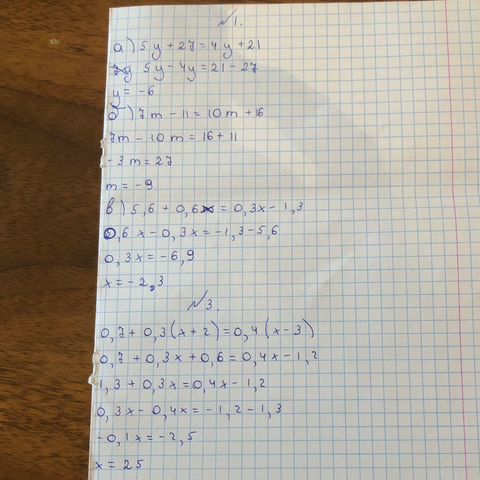 №1.
а) 5y + 27 = 4y + 21
5y - 4y = 21 - 27
y = -6
б) 7m - 11 = 10m + 16
7m - 10m = 16 + 11
-3m = 27
m = -9
в) 5,6 + 0,6x = 0,3x - 1,3
0,6x - 0,3x = -1,3 - 5,6
0,3x = -6,9
x = -2,3
№3.
0,7 + 0,3(x + 2) = 0,4(x - 3)
0,7 + 0,3x + 0,6 = 0,4x - 1,2
1,3 + 0,3x = 0,4x - 1,2
0,3x - 0,4x = -1,2 - 1,3
-0,1x = -2,5
x = 25